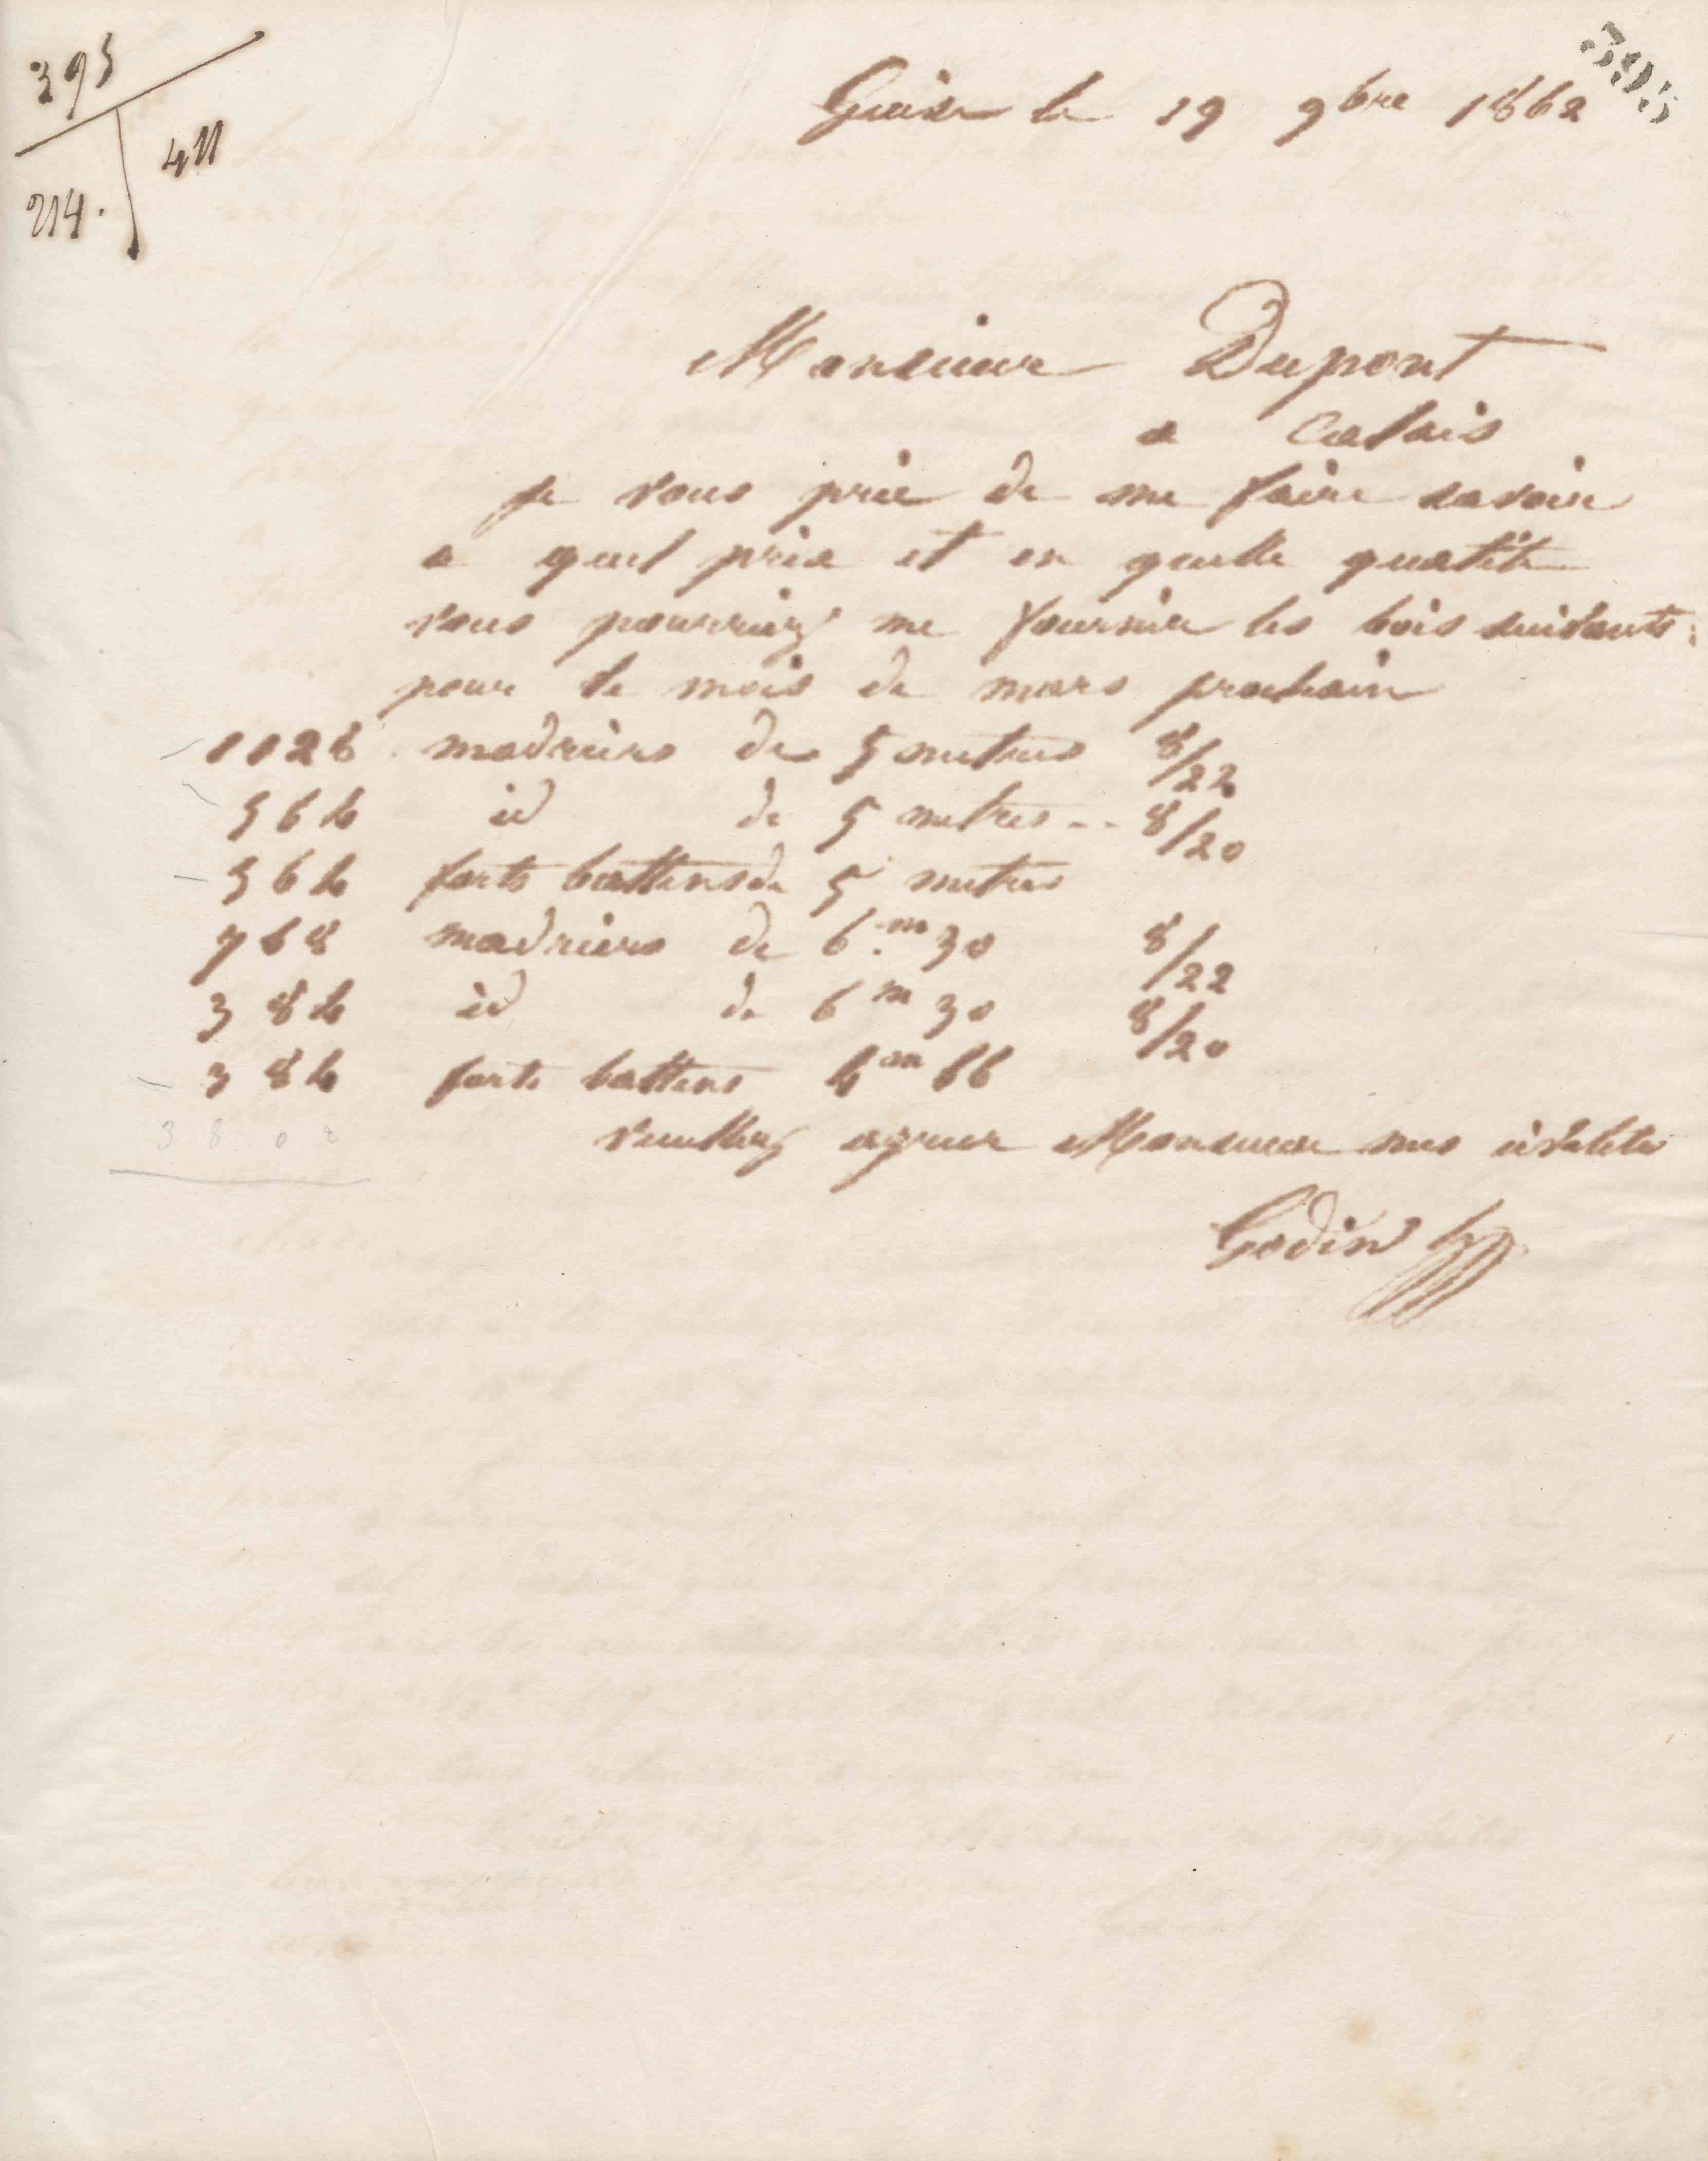 395
411
214.
395
Guise le 19 9bre 1862
Monsieur Dupont
a Calais
je vous prie de me faire savoir
a quel prix et en quelle quatité
vous pourriez me fournir les bois suivants:
pour le mois de mars prochain
1128 madriers de 5 metres 8/22
564 id de 5 metres -- 8/20
564 forts battens de 5 metres
768 madriers de 6.m 30 8/22
384 id de 6m 30 8/20
384 forts battens 4m 66
3802
veuillez agreer Monsieur mes
Godin